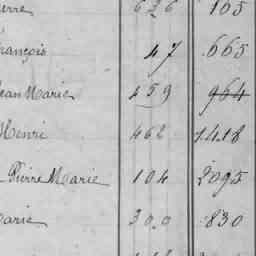 erre 636 105
rançois 47 665
Jean Marie 459 964
Henri 462 1418
Pierre Marie 104 2095
arie 300 830